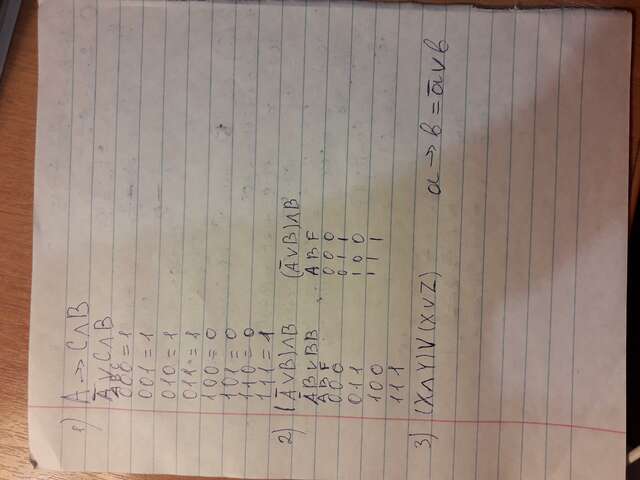 1) A → C∧B
Ā∨C∧B
ABC
000 = 1
001 = 1
010 = 1
011 = 1
100 = 0
101 = 0
110 = 0
111 = 1
2) (Ā∨B)∧B
ĀB∨BB
ABF
000
011
100
111
(Ā∨B)∧B
A B F
0 0 0
0 1 1
1 0 0
1 1 1
3) (X∧Y)∨(X∨Z)
a → b = a̅∨b